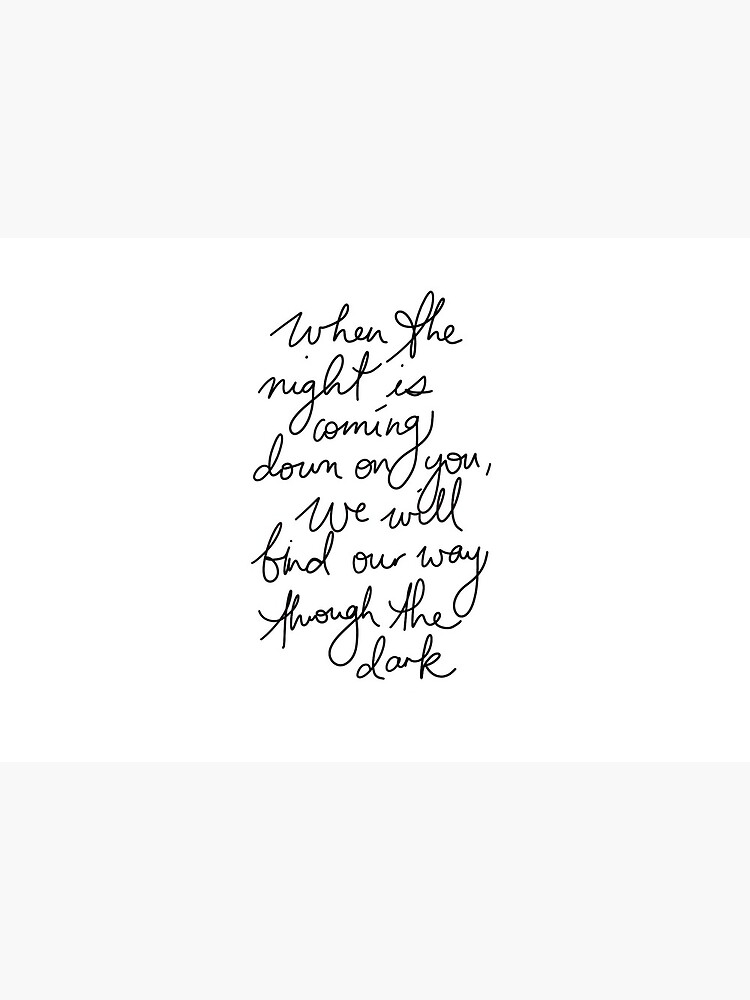 When the
night is
coming
down on you,
We will
find our way
through the
dark